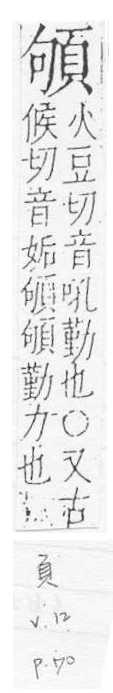 火豆切音吼勤也○又古
候切音姤勤力也
頁
v.12
p.70